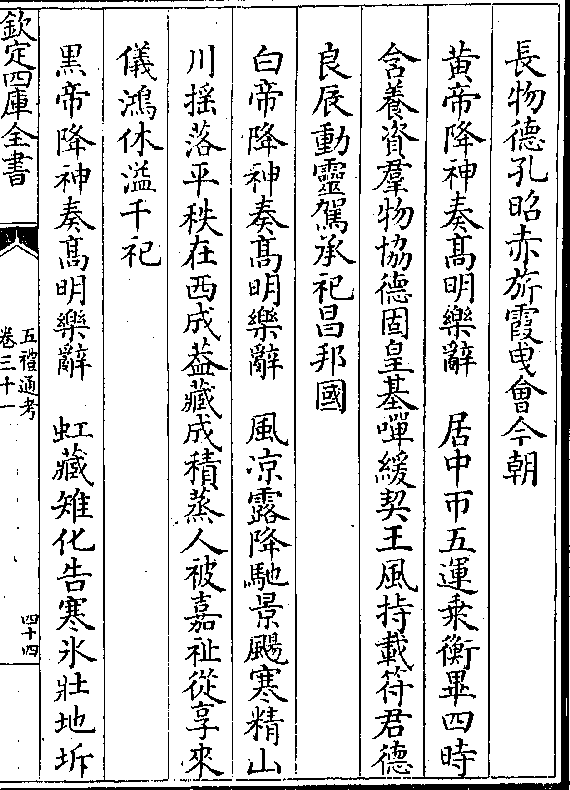 長物德孔昭赤旂霞曳會今朝
黃帝降神奏高明樂辭　居中帀五運乘衡畢四時
含養資羣物協德固皇基嘽緩契王風持載符君德
良辰動靈駕承祀昌邦國
白帝降神奏高明樂辭　風凉露降馳景颺寒精山
川揺落平秩在西成葢藏成積蒸人被嘉祉從享來
儀鴻休溢千祀
黑帝降神奏高明樂辭　虹藏雉化告寒氷壯地坼
欽定四庫全書
五禮通考
卷三十一
四十四